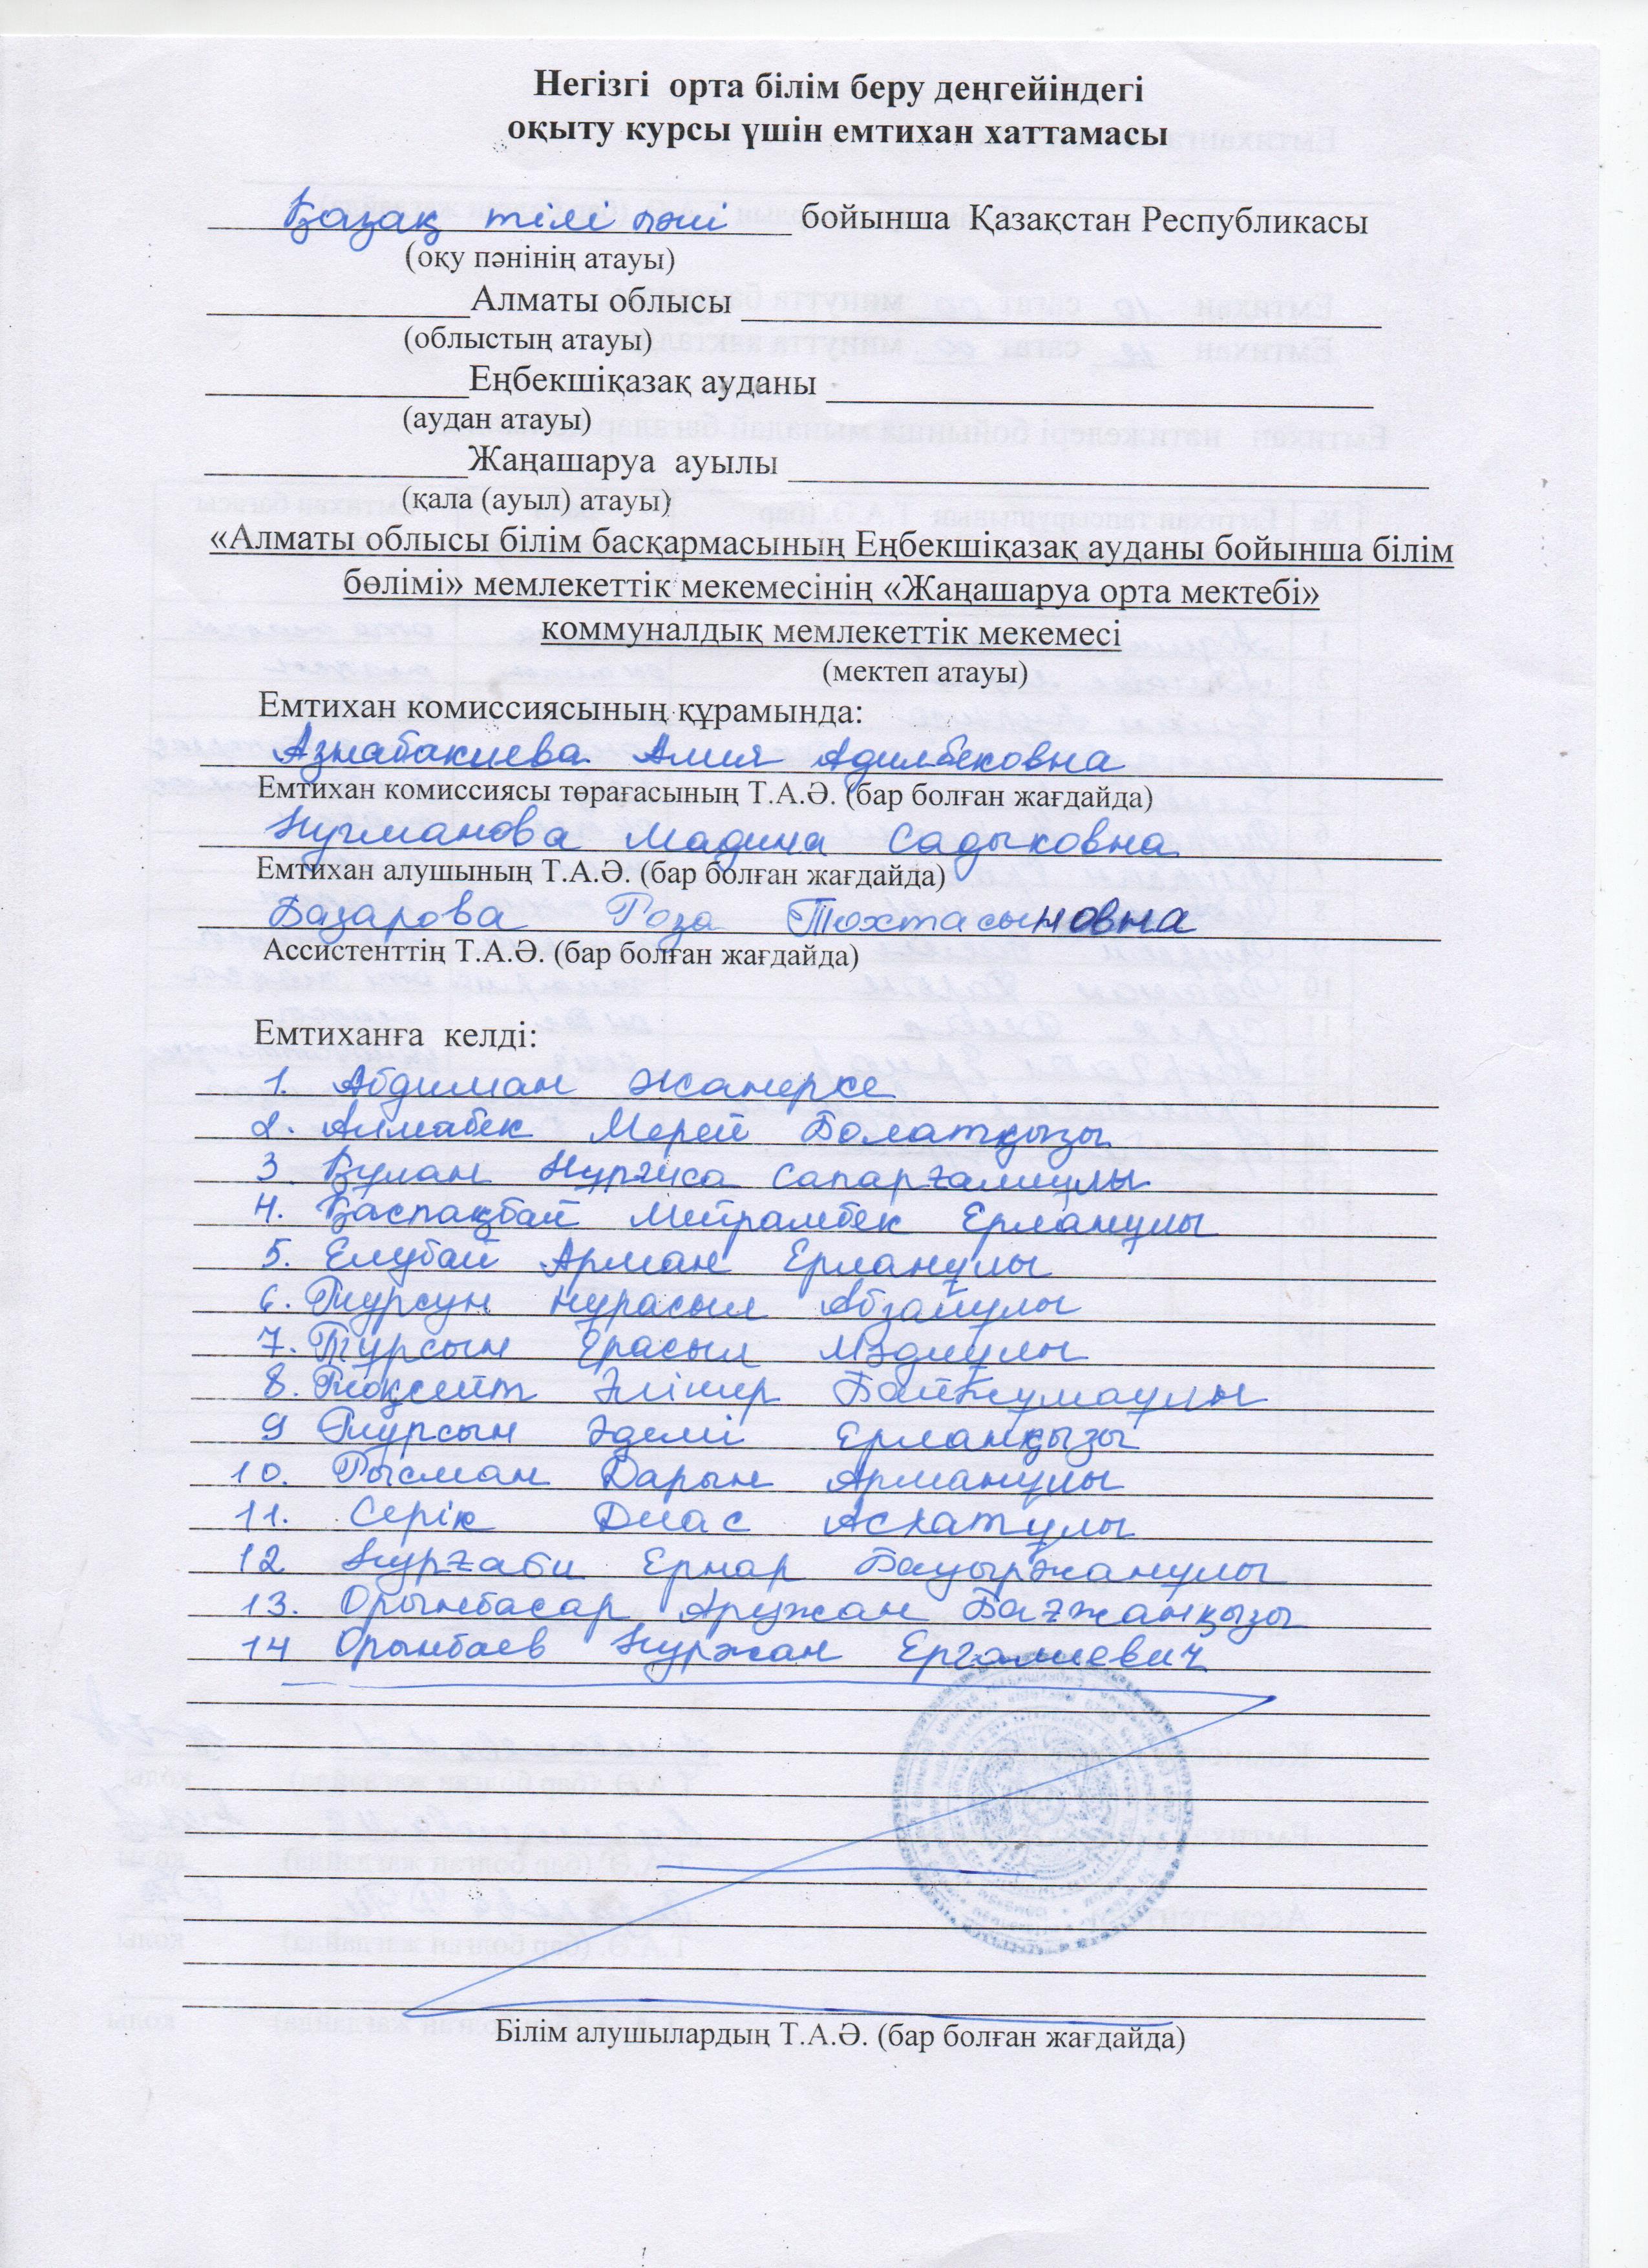 Негізгі орта білім беру деңгейіндегі
оқыту курсы үшін емтихан хаттамасы
Қазақ тілі пәні бойынша Қазақстан Республикасы
(оқу пәнінің атауы)
Алматы облысы
(облыстың атауы)
Еңбекшіқазақ ауданы
(аудан атауы)
Жаңашаруа ауылы
(қала (ауыл) атауы)
«Алматы облысы білім басқармасының Еңбекшіқазақ ауданы бойынша білім
бөлімі» мемлекеттік мекемесінің «Жаңашаруа орта мектебі»
коммуналдық мемлекеттік мекемесі
(мектеп атауы)
Емтихан комиссиясының құрамында:
Азнабакиева Алия Адилбековна
Емтихан комиссиясы төрағасының Т.А.Ә. (бар болған жағдайда)
Нугманова Мадина Садыковна
Емтихан алушының Т.А.Ә. (бар болған жағдайда)
Базарова Роза Тохтасыновна
Ассистенттің Т.А.Ә. (бар болған жағдайда)
Емтиханға келді:
1. Абдиман Жанерке
2. Алмабек Мерей Болатқызы
3. Құлан Нұрғиса Сапарғалиұлы
4. Қаспақбай Мейрамбек Ерланұлы
5. Елубай Арман Ерланұлы
6. Турсун Нурасыл Абзайұлы
7. Тұрсын Ерасыл Мәдиұлы
8. Тоқсейт Әлішер Байжумаұлы
9 Турсын Әдемі Ерланқызы
10. Рысман Дарын Арманұлы
11. Серік Диас Асхатұлы
12 Нұрғаби Ернар Бауыржанұлы
13. Орынбасар Аружан Бағжанқызы
14 Орынбаев Нуржан Ергалиевич
Білім алушылардың Т.А.Ә. (бар болған жағдайда)